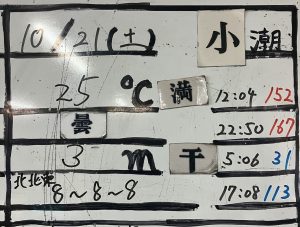 10/21(土) 小潮
25℃ 満 12:04 152
曇 22:50 167
3m 干 5:06 31
北北東 8~8~8 17:08 113